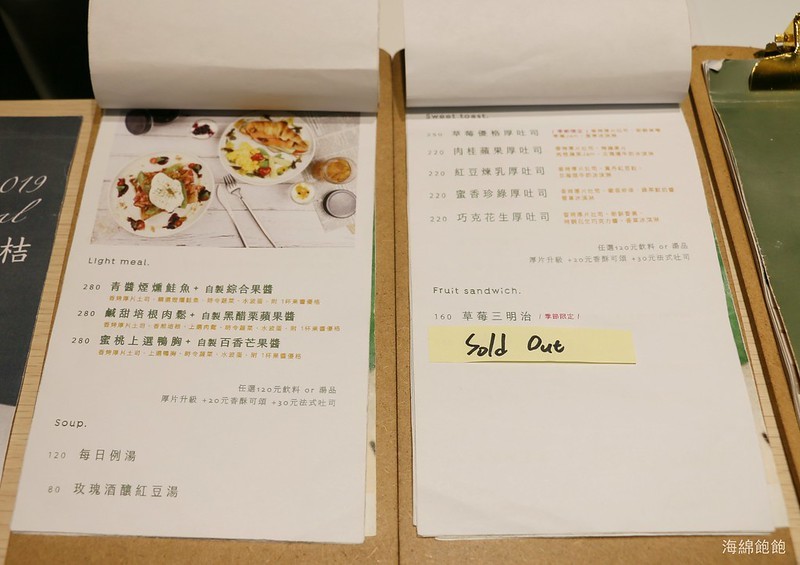 019
al
桔
Light meal.
280 青醬煙燻鮭魚+ 自製綜合果醬
280 鹹甜培根肉鬆+ 自製黑醋栗蘋果醬
280 蜜桃上選鴨胸+ 自製百香芒果醬
任選120元飲料 or 湯品
厚片升級 +20元香酥可頌 +30元法式吐司
Soup.
120 每日例湯
80 玫瑰酒釀紅豆湯
Sweet toast.
草莓優格厚吐司
220 肉桂蘋果厚吐司
220 紅豆煉乳厚吐司
220 蜜香珍綠厚吐司
220 巧克花生厚吐司
任選120元飲料 or 湯品
厚片升級 +20元香酥可頌 +30元法式吐司
Fruit sandwich.
160 草莓三明治 ( 季節限定 )
Sold Out
海綿飽飽